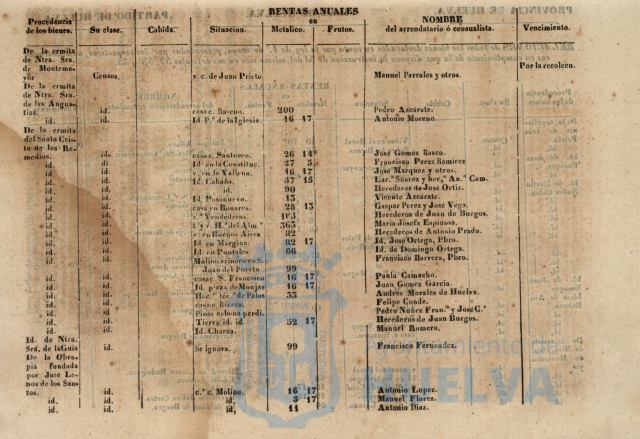 RENTAS ANUALES
en
Procedencia de los bienes. Su clase. Cabida. Situacion. Metalico. Frutos. NOMBRE del arrendatario ó censualista. Vencimiento.
De la ermita
de Ntra. Sra.
de Montema- Por la recolecn.
yor Censos. v. c. de Juan Prieto Manuel Parrales y otros.
De la ermita
de Ntra. Sra.
de las Angus-
tias. id. casa c. Bascos. 200 Pedro Azcárate.
id. id. Id. P.ª de la Iglesia. 16 17 Antonio Moreno.
De la ermita
del Santo Cris-
to de los Re-
medios. id. casa c. Santeren. 26 14 José Gomez Rasco.
id. id. Id. en la Constitue. 27 5 Francisco Perez Ramirez
id. id. v. en la Vallena. 16 17 José Marquez y otros.
id. id. Id. Cabahs. 37 15 Lar.º Suarez y her.ª An.ª Cam.
id. id. id. 90 Herederos de José Ortiz.
id. id. Id. Pasonuevo. 13 Vicente Azcárate.
id. id. casa en Bonares. 28 13 Gaspar Perez y José Vega.
id. id. c.ª Vendederas. 165 Herederos de Juan de Burgos.
id. id. t. y v. H.ª del Alm.º 363 Maria Josefa Espinosa.
id. id. v. en Buenos Aires 82 Herederos de Antonio Prado.
id. id. Id. en Margina. 82 17 Id. José Ortega, Pbro.
id. id. Id. en Puntales 66 Id. de Domingo Ortega.
id. id. Molino arinero en S. Francisco Barrera, Pbro.
Juan del Puerto 99
id. id. casa c. S. Francisco 16 17 Paula Camacho.
id. id. Id. plaza de Monjas 16 17 Juan Gomez Garcia.
id. id. Hac.ª ter.ª de Palos 33 Andres Morales de Huelva.
id. id. casa c. Rivera. Felipe Conde.
id. id. Pinar cabona perdi. Pedro Nuñez Fran.º y José C.ª
id. id. Tierra id. id 32 17 Herederos de Juan Burgos.
id. id. Id. Charca. Manuel Romero.
Id. de Ntra.
Sra. de la Guia id. Se ignora. 99 Francisco Fernandez.
De la Obra-
pia fundada
por José Le-
nos de los San-
tos. id. c.ª c. Molino. 16 17 Antonio Lopez.
id. id. id. 5 17 Manuel Florez.
id. id. id. 11 Antonio Diaz.
Ayuntamiento de
HUELVA